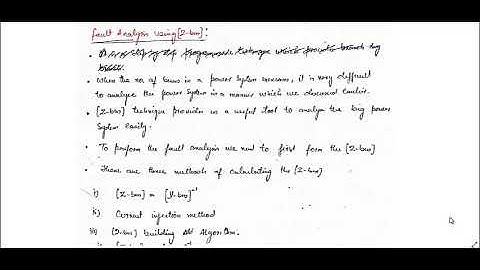 Fault Analysis using [Z-bus]:
• When the no. of buses in a power system increases, it is very difficult
to analyse the power system in a manner which we discussed earlier.
• [Z-bus] technique provides us a useful tool to analyse the big power
system easily.
• To perform the fault analysis we need to first form the [Z-bus]
• There are three methods of calculating the [Z-bus]
i) [Z-bus] = [Y-bus]⁻¹
ii) Current injection method
iii) [Z-bus] building Algorithm.